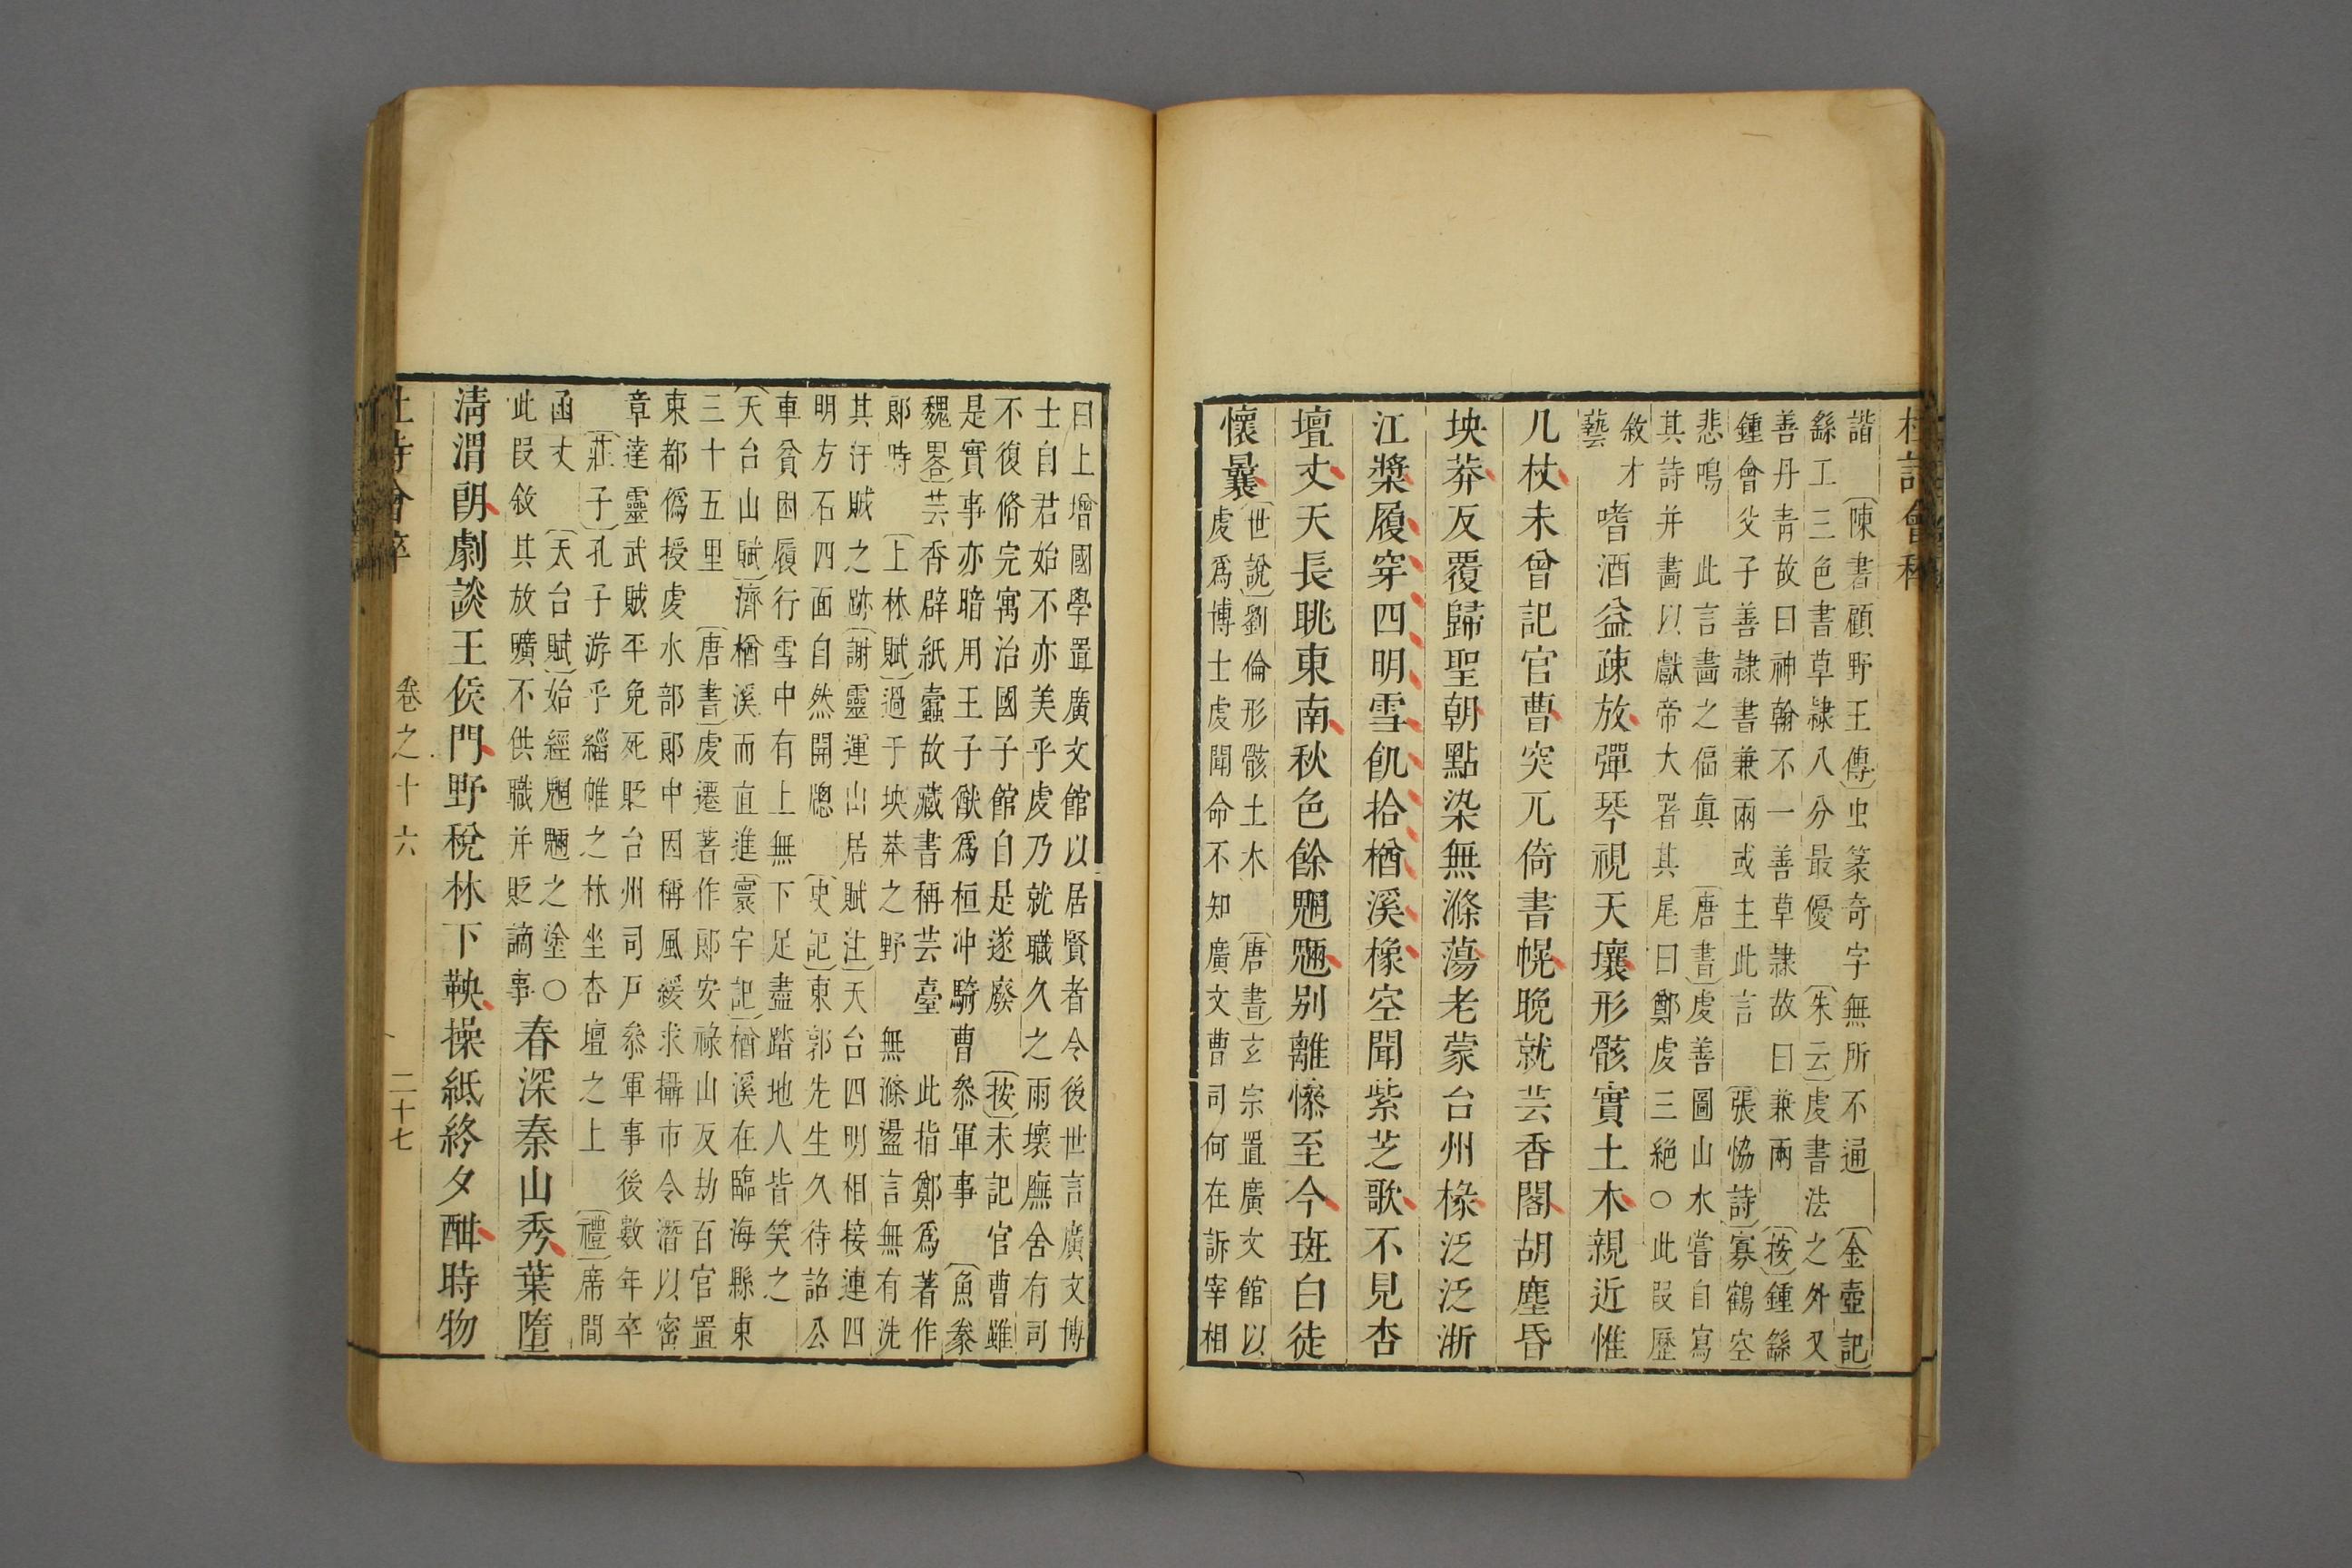 杜詩會稡
諧　〔陳書顧野王傳〕虫篆奇字無所不通　〔金壺記〕
繇工三色書草隷八分最優　〔朱云〕虔書法之外又
善丹青故曰神翰不一善草隷故曰兼兩　〔按〕鍾繇
鍾會父子善隷書兼兩或主此言　〔張恊詩〕寡鶴空
悲鳴　此言畫之偪真　〔唐書〕虔善圖山水嘗自寫
其詩并畫以獻帝大署其尾曰鄭虔三絶○此段歷
敘才
藝
嗜酒益疎放彈琴視天壤形骸實土木親近惟
几杖未曾記官曹突兀倚書幌晚就芸香閣胡塵昏
坱莽反覆歸聖朝點染無滌蕩老蒙台州掾泛泛浙
江槳履穿四明雪飢拾楢溪橡空聞紫芝歌不見杏
壇丈天長眺東南秋色餘魍魎别離慘至今斑白徒
懷曩
〔世說〕劉倫形骸土木　〔唐書〕玄宗置廣文館以
虔爲博士虔聞命不知廣文曹司何在訴宰相
曰上增國學置廣文館以居賢者令後世言廣文博
士自君始不亦美乎虔乃就職久之雨壞廡舍有司
不復脩完寓治國子館自是遂廢　〔按〕未記官曹雖
是實事亦暗用王子猷爲桓冲騎曹叅軍事　〔魚豢
魏畧〕芸香辟紙蠹故藏書稱芸臺　此指鄭爲著作
郎時　〔上林賦〕過于坱莽之野　無滌盪言無有洗
其汙賊之跡　〔謝靈運山居賦注〕天台四明相接連四
明方石四面自然開牕　〔史記〕東郭先生久待詔公
車貧困履行雪中有上無下足盡踏地人皆笑之
〔天台山賦〕濟楢溪而直進　〔寰宇記〕楢溪在臨海縣東
三十五里　〔唐書〕虔遷著作郎安祿山反劫百官置
東都僞授虔水部郎中因稱風緩求攝市令潛以密
章達靈武賊平免死貶台州司戸叅軍事後數年卒
〔莊子〕孔子游乎緇帷之林坐杏壇之上　〔禮〕席間
函丈　〔天台賦〕始經魍魎之塗○
此段敘其放曠不供職并貶謫事
春深秦山秀葉墮
清渭朗劇談王侯門野稅林下鞅操紙終夕酣時物
杜詩會稡　卷之十六　二十七